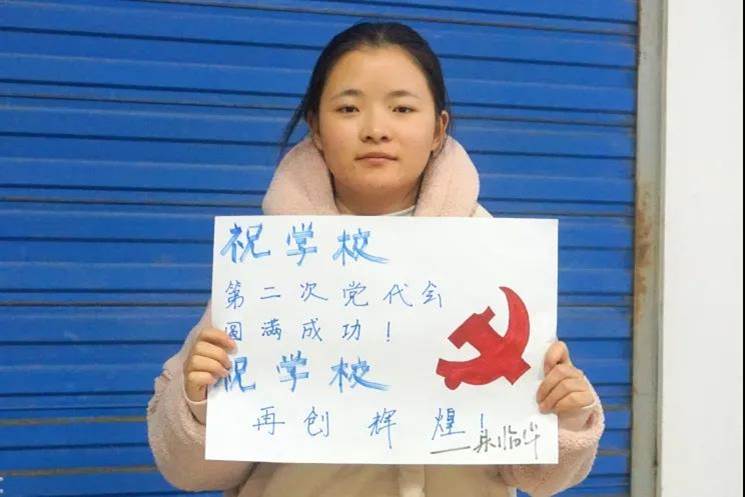 祝学校
第二次党代会
圆满成功！
祝学校
再创辉煌！